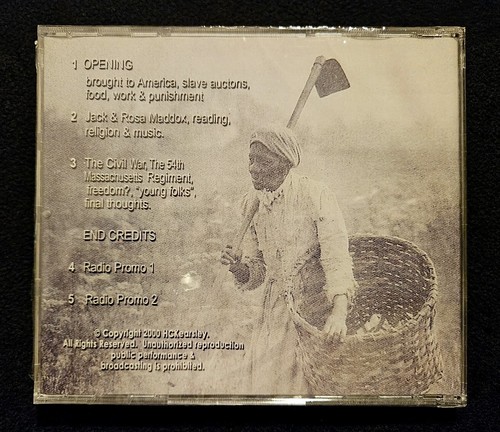 1 OPENING
brought to America, slave auctons,
food, work & punishment
2 Jack & Rosa Maddox, reading,
religion & music.
3 The Civil War, The 54th
Massachusetts Regiment,
freedom?, "young folks",
final thoughts.
END CREDITS
4 Radio Promo 1
5 Radio Promo 2
© Copyright 2000 HCKearsley.
All Rights Reserved. Unauthorized reproduction
public performance &
broadcasting is prohibited.